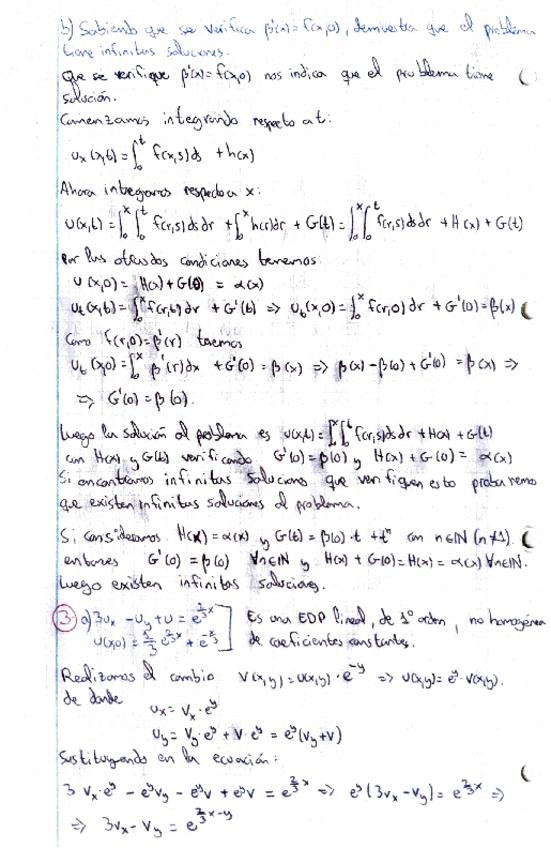 b) Sabiendo que se verifica β'(x)=f(x,0), demuestra que el problema
tiene infinitas soluciones.
Que se verifique β'(x)=f(x,0) nos indica que el problema tiene
solución.
Comenzamos integrando respecto a t:
u_x(x,t)=∫_0^t f(x,s)ds + h(x)
Ahora integramos respecto a x:
u(x,t)=∫_0^x ∫_0^t f(r,s)dsdr + ∫_0^x h(r)dr + G(t) = ∫_0^x ∫_0^t f(r,s)dsdr + H(x) + G(t)
Por las otras dos condiciones tenemos:
u(x,0) = H(x) + G(0) = α(x)
u_t(x,t)=∫_0^x f(r,t)dr + G'(t) ⇒ u_t(x,0)=∫_0^x f(r,0)dr + G'(0)=β(x)
Como f(r,0)=β'(r) tenemos
u_t(x,0)=∫_0^x β'(r)dx + G'(0) = β(x) ⇒ β(x)-β(0)+G'(0) = β(x) ⇒
⇒ G'(0) = β(0).
Luego la solución al problema es u(x,t)=∫_0^x ∫_0^t f(r,s)dsdr + H(x) + G(t)
con H(x) y G(t) verificando G'(0)=β(0) y H(x)+G(0) = α(x)
Si encontramos infinitas soluciones que verifiquen esto probaremo
que existen infinitas soluciones al problema.
Si consideramos H(x)=α(x) y G(t)=β(0)·t + tⁿ con n∈ℕ (n≠1).
entonces G'(0) = β(0) ∀n∈ℕ y H(x)+G(0)=H(x)=α(x) ∀n∈ℕ.
Luego existen infinitas soluciones.
3 a) 3u_x - u_y + u = e^{2/3 x} Es una EDP lineal, de 1º orden, no homogénea
de coeficientes constantes.
Realizamos el cambio v(x,y)=u(x,y)·e^{-y} ⇒ u(x,y)=e^y·v(x,y).
de donde u_x = v_x·e^y
u_y = v_y·e^y + v·e^y = e^y(v_y+v)
Sustituyendo en la ecuación:
3 v_x·e^y - e^y v_y - e^y v + e^y v = e^{2/3 x} ⇒ e^y(3v_x-v_y) = e^{2/3 x} ⇒
⇒ 3v_x - v_y = e^{2/3 x-y}